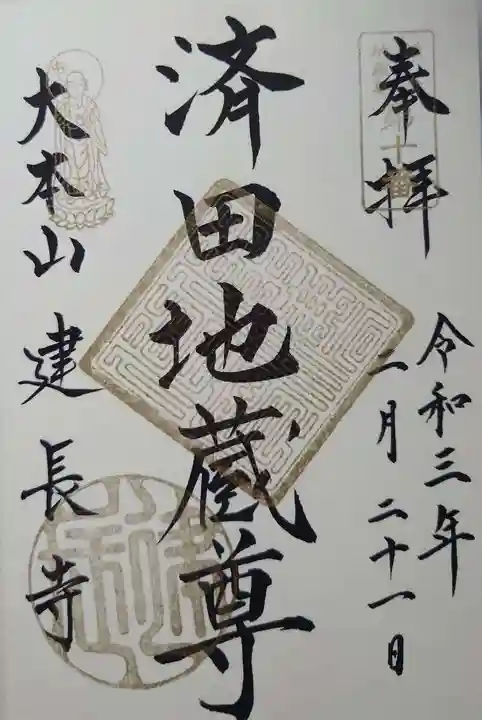 奉拝
令和三年
一月二十一日
済田地蔵尊
大本山建長寺